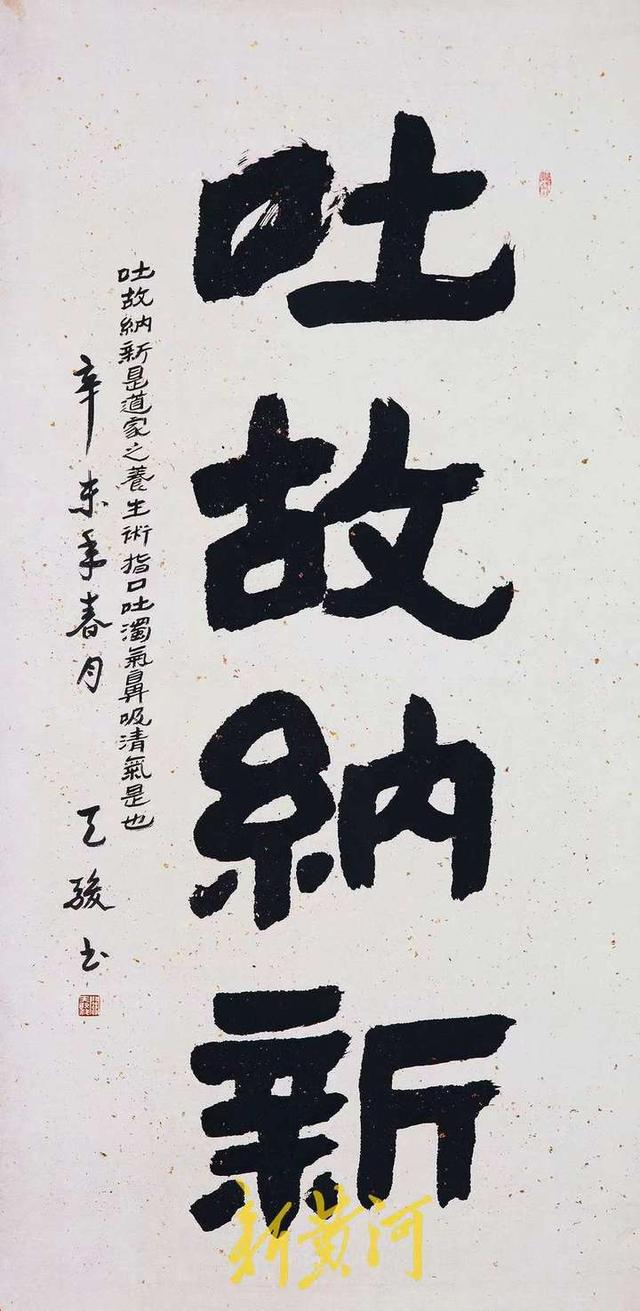 吐故納新
吐故納新是道家之養生術指口吐濁氣鼻吸清氣是也
辛未年春月
駿书
新黄河